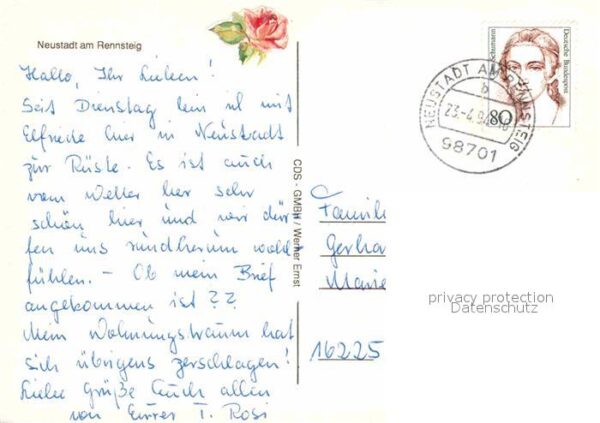 Neustadt am Rennsteig
Hallo, Ihr Lieben!
Seit Dienstag bin ich mit
Elfriede hier in Neustadt
zur Rüste. Es ist auch
vom Wetter her sehr
schön hier und wir dür-
fen uns rundherum wohl
fühlen. – Ob mein Brief
angekommen ist ??
Mein Wohnungstraum hat
sich übrigens zerschlagen!
Liebe Grüße Euch allen
von Eurer T. Rosi
CDS - GMBH / Werner Ernst
Deutsche Bundespost
80
NEUSTADT AM RENNSTEIG
b
23.-4.94
98701
Famili
Gerha
Marie
16225
privacy protection
Datenschutz